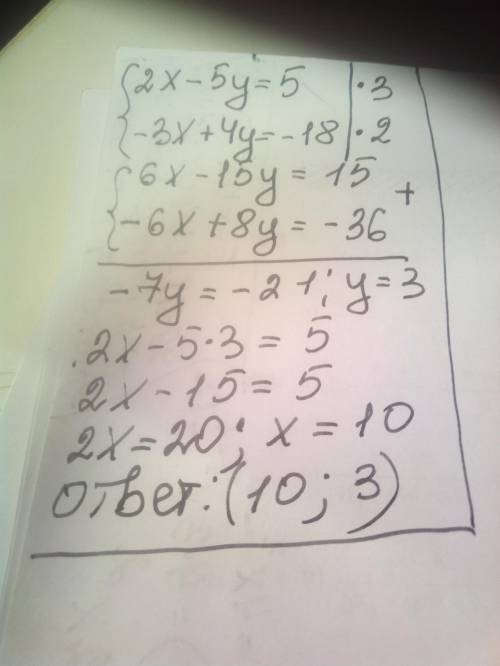 {2x - 5y = 5 | · 3
{-3x + 4y = -18 | · 2
{6x - 15y = 15 +
{-6x + 8y = -36
-7y = -21; y = 3
2x - 5·3 = 5
2x - 15 = 5
2x = 20; x = 10
ответ: (10; 3)